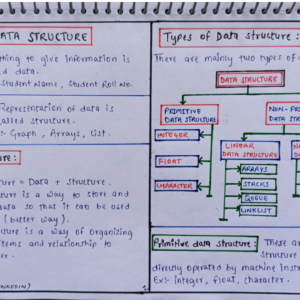 DATA STRUCTURE
thing to give information is
data.
Student Name, Student Roll No.
Representation of data is
called structure.
:- Graph, Arrays, List.
ture = Data + Structure.
ture is a way to store and
data so that it can be used
(better way).
ucture is a way of organizing
items and relationship to
er.
Types of Data structure:
There are mainly two types of
DATA STRUCTURE
PRIMITIVE
DATA STRUCTURE
NON-PRI
DATA STRU
INTEGER
FLOAT
CHARACTER
LINEAR
DATA STRUCTURE
ARRAYS
STACKS
QUEUE
LINKLIST
Primitive data structure: These are
structure
directly operated by machine instru
Ex:- integer, float, character.